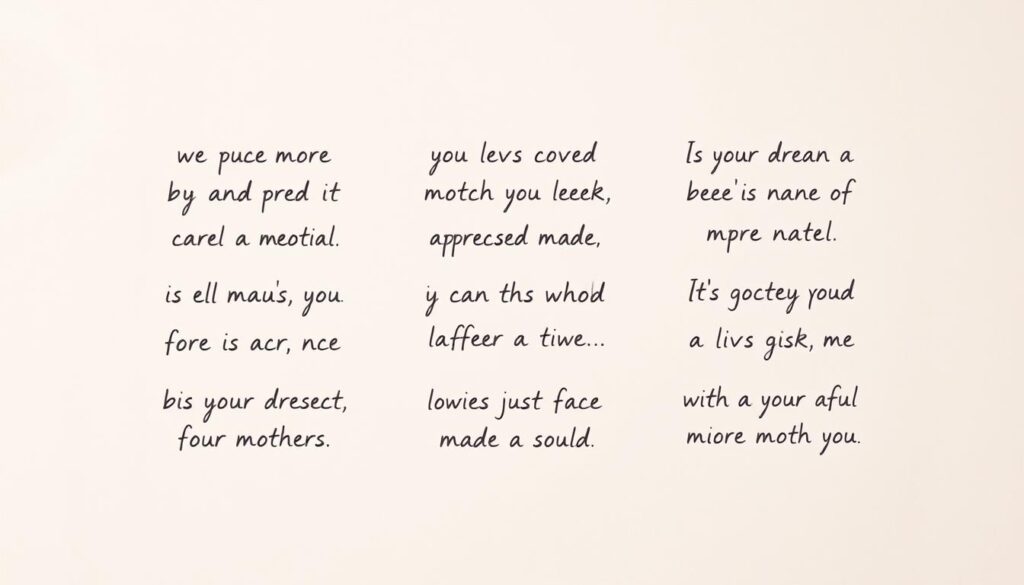 we puce more
by and pred it
carel a meotial.
is ell mau's, you.
fore is acr, nce
bis your dresect,
four mothers.
you levs coved
motch you leeek,
apprecsed made,
iy can ths whold
laffeer a tiwe...
lowies just face
made a sould.
Is your drean a
beee'is nane of
mpre natel.
It's goctey youd
a livs gisk, me
with a your aful
miore moth you.